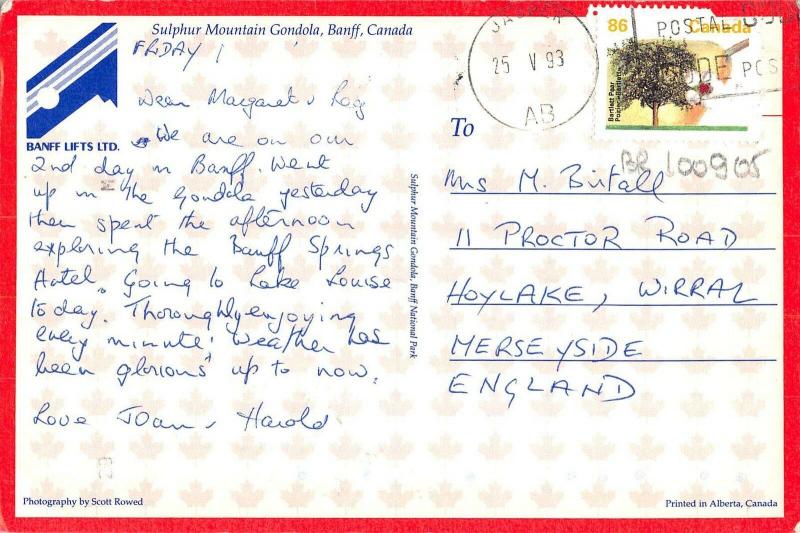 Sulphur Mountain Gondola, Banff, Canada
FRIDAY
BANFF LIFTS LTD.
Dear Margaret & Reg
We are on our
2nd day in Banff. Went
up in the Gondola yesterday
then spent the afternoon
exploring the Banff Springs
Hotel. Going to Lake Louise
today. Thoroughly enjoying
every minute! Weather has
been glorious up to now.
Love Joan & Harold
Photography by Scott Rowed
Sulphur Mountain Gondola, Banff National Park
JASPER
25 V 93
AB
86 Canada
Bartlett Pear
POSTAL CODE
CODE POS
To
BR 100905
Mrs M. Birtall
11 PROCTOR ROAD
HOYLAKE, WIRRAL
MERSEYSIDE
ENGLAND
Printed in Alberta, Canada